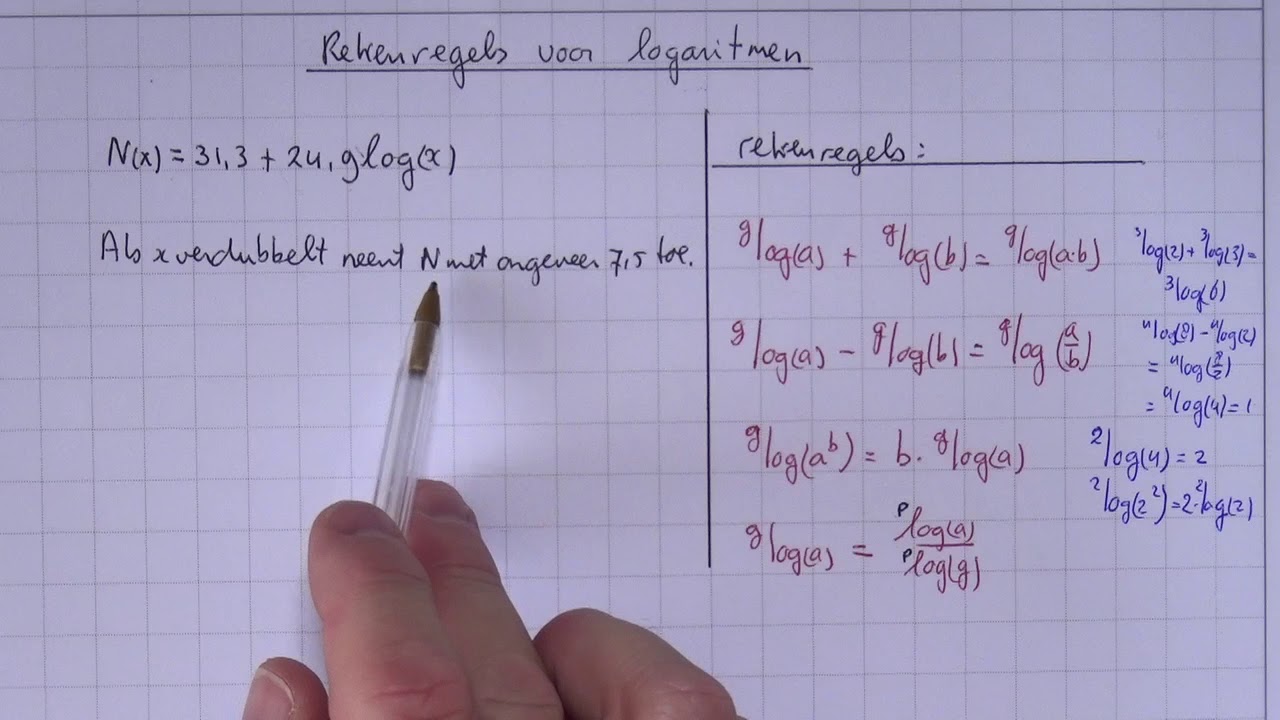 Rekenregels voor logaritmen
N(x) = 31,3 + 24,9log(x)
Als x verdubbelt neemt N met ongeveer 7,5 toe.
rekenregels:
ᵍlog(a) + ᵍlog(b) = ᵍlog(a·b)
³log(2) + ³log(3) =
³log(6)
ᵍlog(a) - ᵍlog(b) = ᵍlog(a/b)
⁴log(8) - ⁴log(2)
= ⁴log(8/2)
= ⁴log(4) = 1
ᵍlog(aᵇ) = b · ᵍlog(a)
²log(4) = 2
²log(2²) = 2·²log(2)
ᵍlog(a) = ᵖlog(a) / ᵖlog(g)